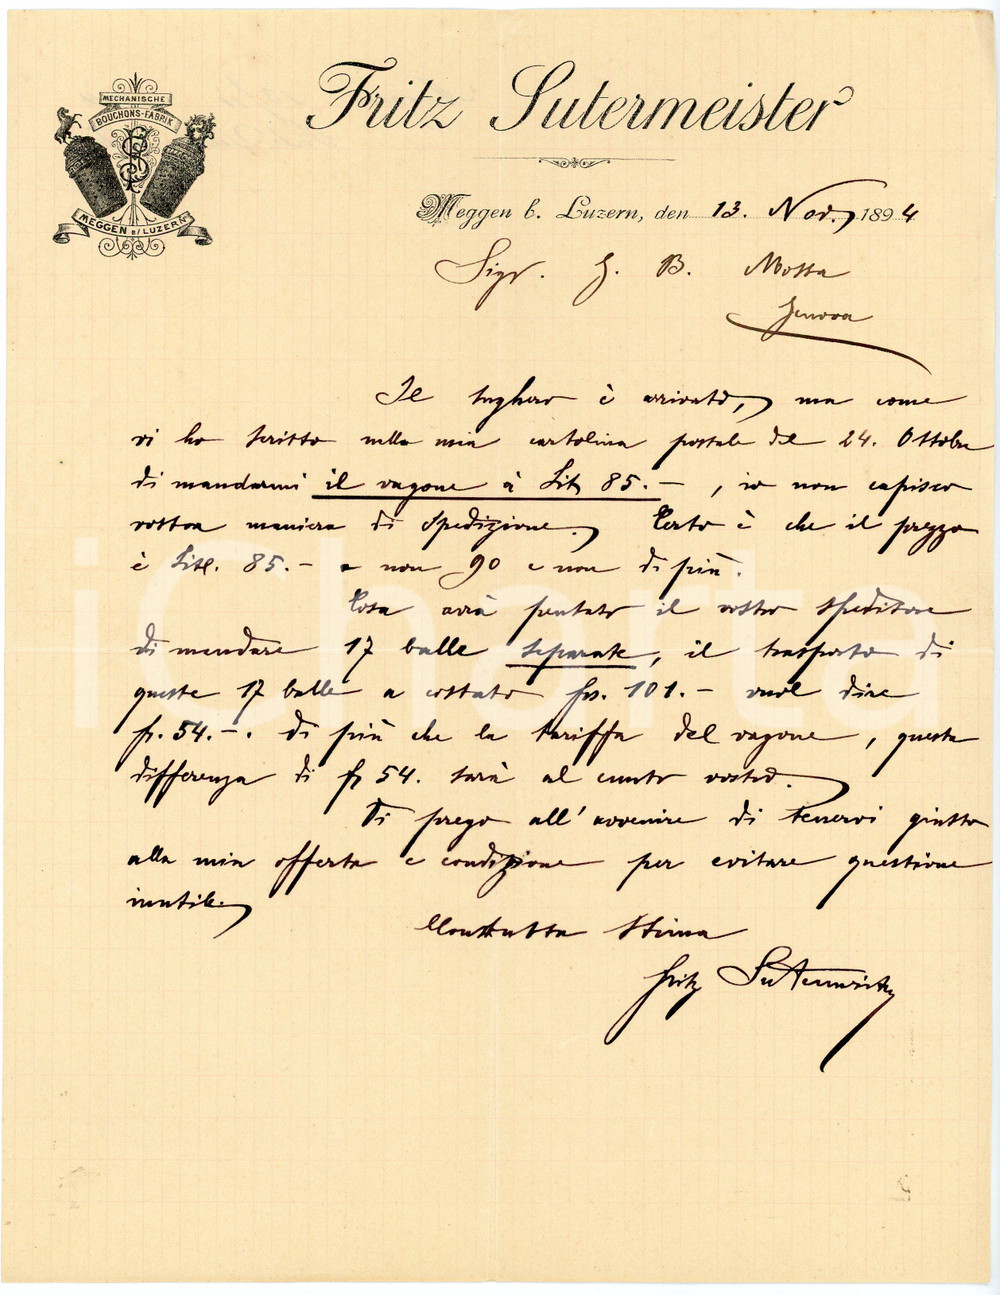 MECHANISCHE
BOUCHONS-FABRIK
MEGGEN B/LUZERN
Fritz Sutermeister
Meggen b. Luzern, den 13. Nov. 1894
Sigr. G. B. Mossa
Genova
Il sughero è arrivato, ma come
vi ho scritto nella mia cartolina postale del 24. Ottobre
di mandarmi il vagone à Lit 85.- , io non capisco
vostra maniera di spedizione. Certo è che il prezzo
è Lit. 85.- e non 90 e non di più.
Cosa avrà pensato il vostro speditore
di mandare 17 balle separate, il trasporto di
queste 17 balle a costato frs. 101.- vuol dire
fr. 54.-. di più che la tariffa del vagone, questa
differenza di fr 54. sarà al cunto vostro.
Vi prego all'avvenire di tenervi giusto
alla mia offerta e condizione per evitare questione
inutile.
Con tutta stima
Fritz Sutermeister
iCharta